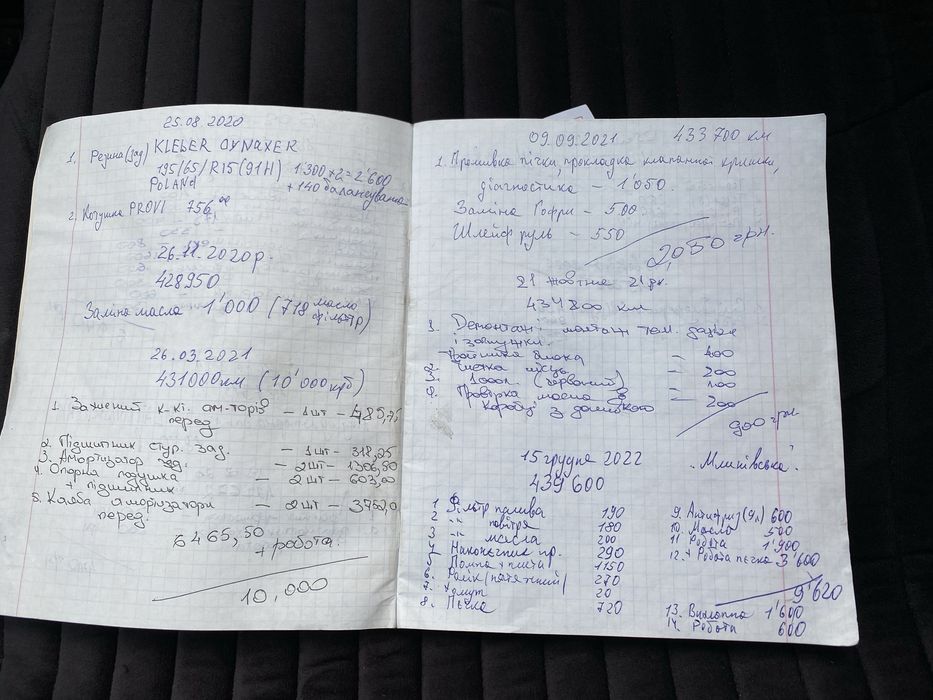 25.08.2020
1. Резина (зад) KLEBER DYNAXER
195/65/R15 (91H) 1'300 × 2 = 2'600
POLAND + 140 балансування
2. Котушка PROVI 756 гр
26.11.2020 р.
428950
Заміна масла 1'000 (718 масло фільтр)
26.03.2021
431000 км (10'000 крб)
1. к-кт. ам-торів – 1 шт – 485,75
перед
2. Підшипник ступ. зад. – 1 шт – 318,25
3. Амортизатор зад. – 2 шт – 1306,50
4. Опорна подушка – 2 шт – 603,00
+ підшипник
5. амортизатори – 2 шт – 3752,0
перед.
6465,50
+ робота
10,000
09.09.2021 433700 км
1. Промивка пічки, прокладка клапанної кришки,
діагностика – 1'050.
Заміна Гофри – 500
Шлейф руль – 550
2050 грн.
21 жовтня 21 р.
434800 км
1. Демонтаж і монтаж
і заглушки.
блока – 400
2. Чистка – 200
3. (червоний) – 100
4. Провірка масла в – 200
коробці з
900 грн
15 грудня 2022 "Млинівська"
439600
1 Фільтр палива 190
2 " повітря 180
3 " масла 200
4 Наконечник пр. 290
5 Помпа + 1150
6. Ролік (натяжний) 270
7. Хомут 20
8. Пічка 720
9. Антифриз (9л) 600
10. Масло 500
11 Робота 1'900
12. + Робота пічка 3'600
9'620
13. Вихлопна 1'600
14. Робота 600